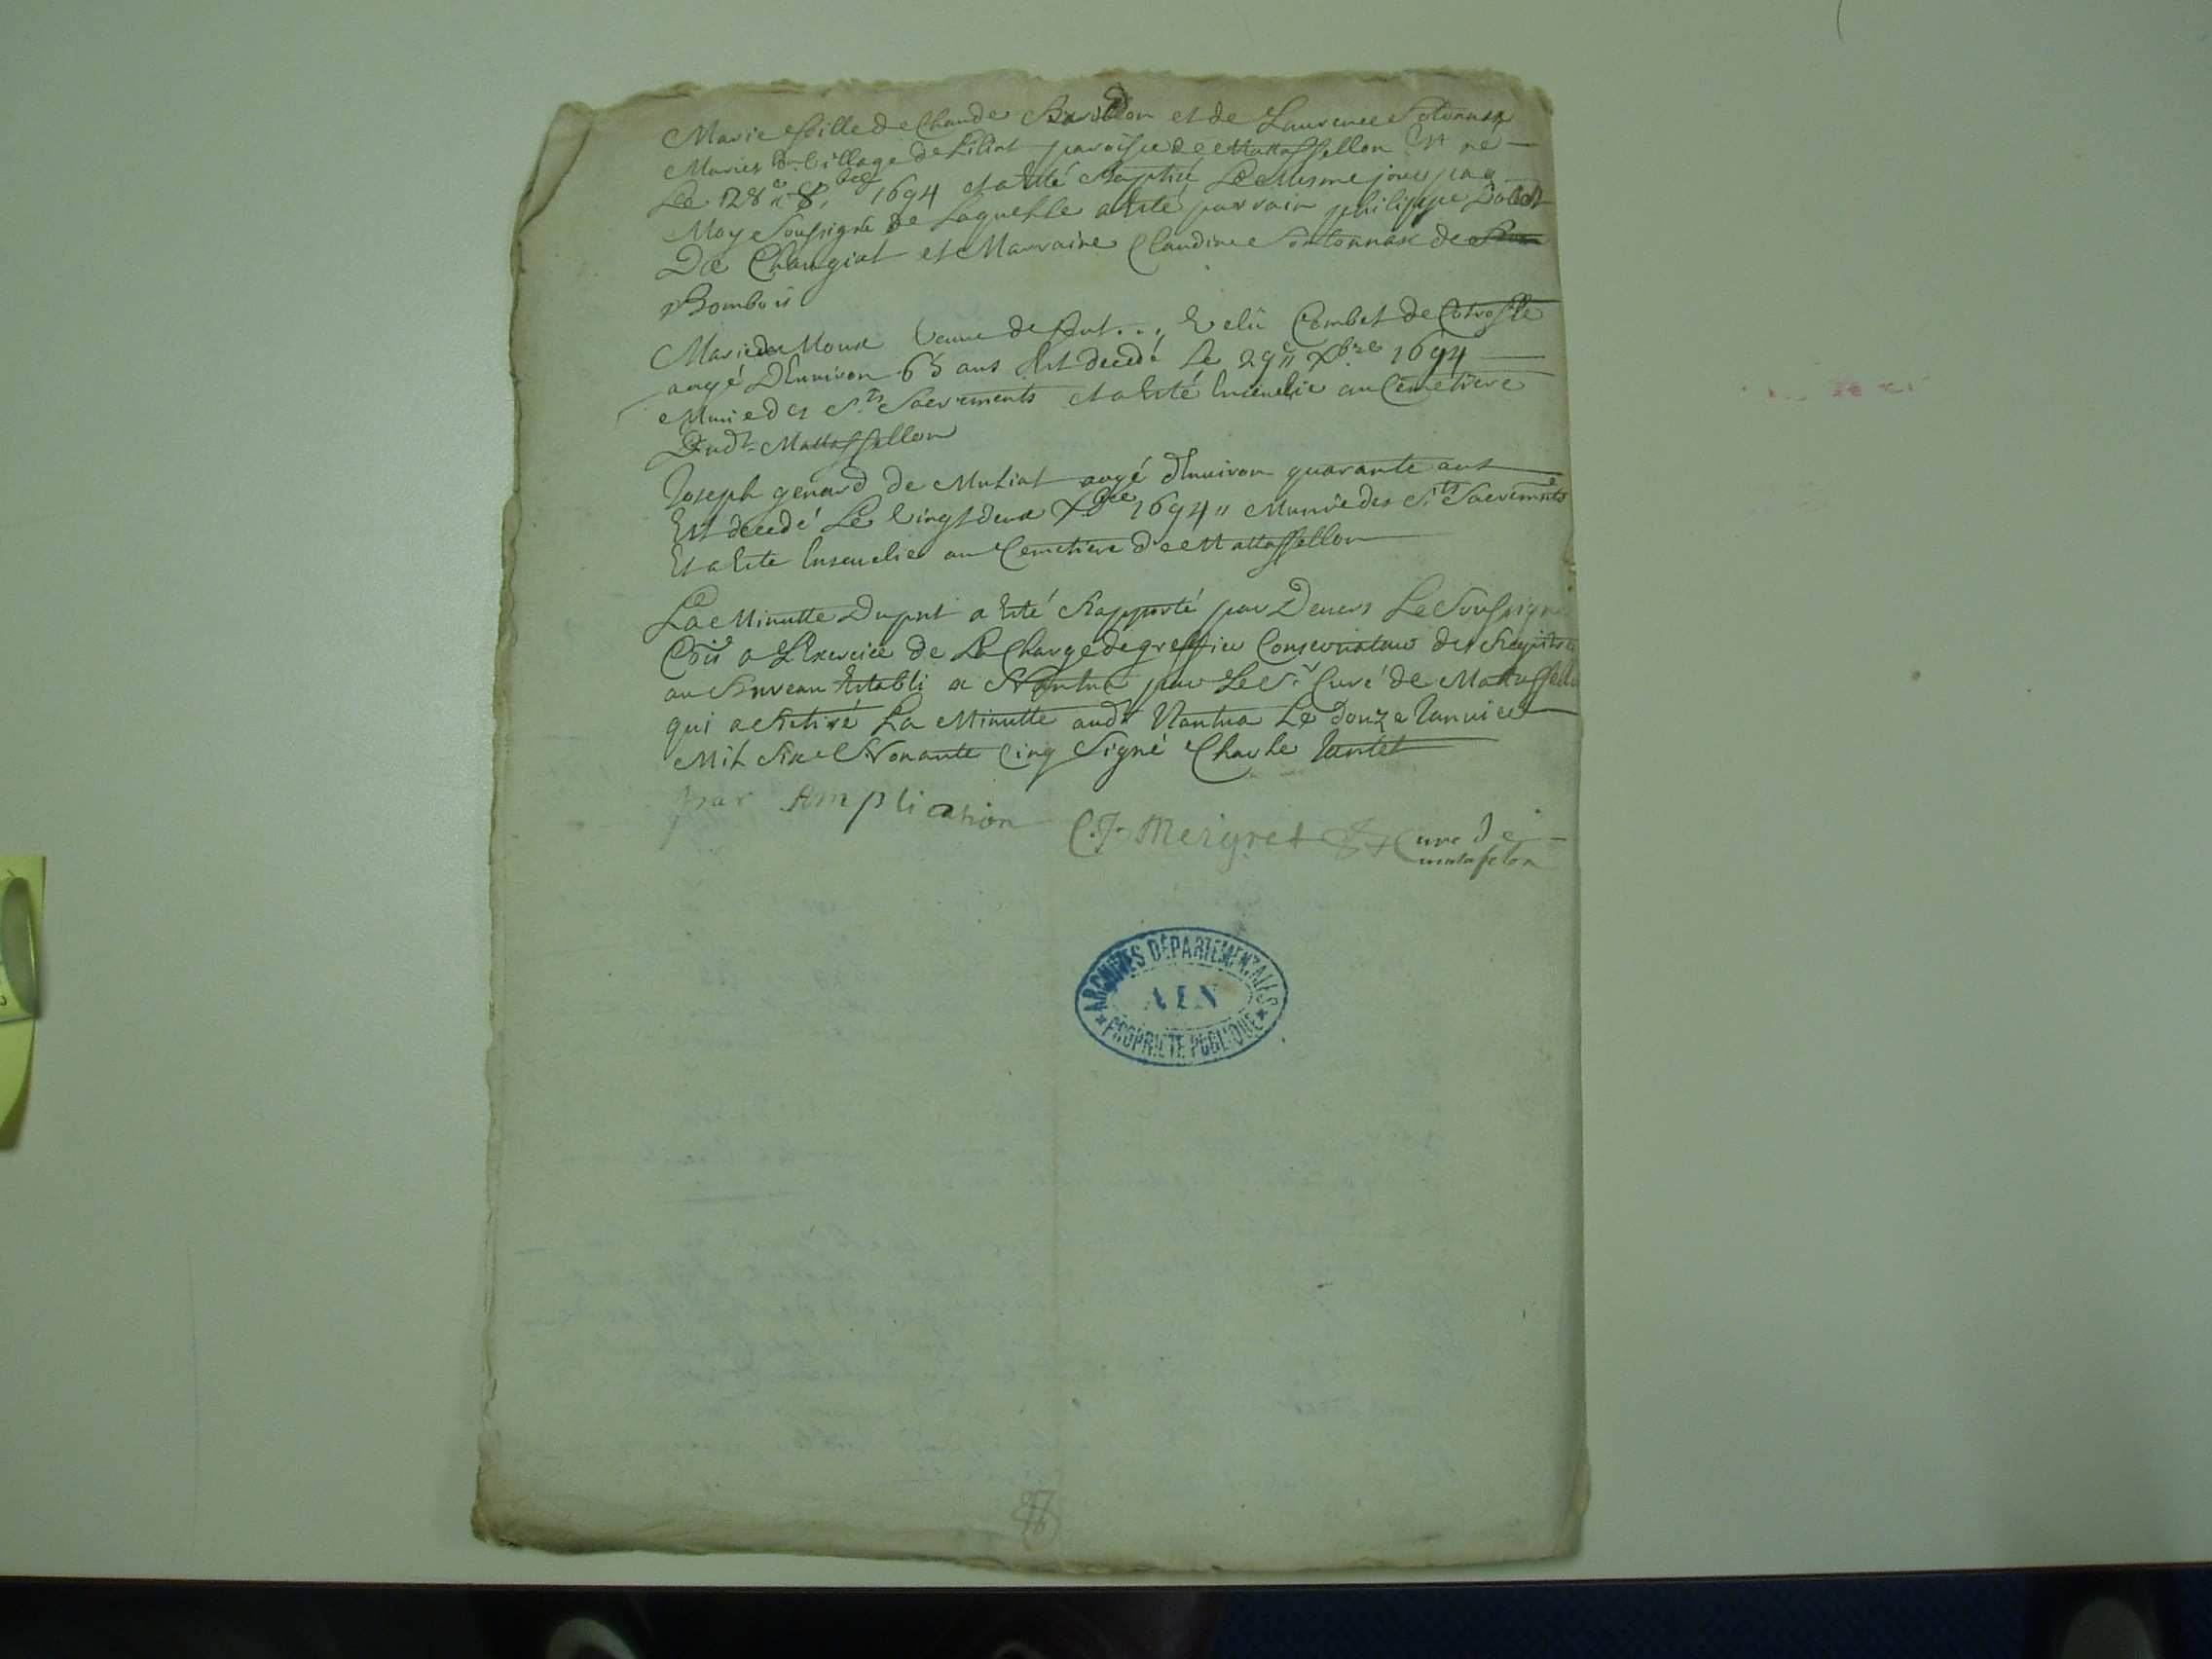 Marie fille de Claude et de Laurence
Maries du village de Liliat paroisse de Mattaffellon Est né
Le 1694 et a Esté Baptisé Le Mesme jour par
Moy Soussigné de Laquelle a Esté parrain philippe
De Changiat et Marraine Claudine de
Bombois
Marie de Moux veuve de Combet de
aagé D'Environ 65 ans Est decedé Le 29" Xbre 1694
Munie des Sts Sacrements et a Esté Ensevelie au Cemetiere
Dudt Mattaffellon
Joseph genard de Mutiat aagé d'Environ quarante ans
Est decedé Le vingt deux Xbre 1694" Munie des Sts Sacrements
Et a Este Ensevelie au Cemetiere de Mattaffellon
La Minutte Duput a Esté Rapporté par Devers Le Soussigné
a L'Exercice de La Charge de greffier Conservateur des Registres
au Bureau Establi a Nantua par Le Sr Curé de Mattaffellon
qui a Retiré La Minutte audt Nantua Le Douze Janvier
Mil Six C Nonante Cinq Signé Charle
par Ampliation
C.J. Meigret Cure de
matafelon
ARCHIVES DÉPARTEMENTALES
AIN
PROPRIÉTÉ PUBLIQUE